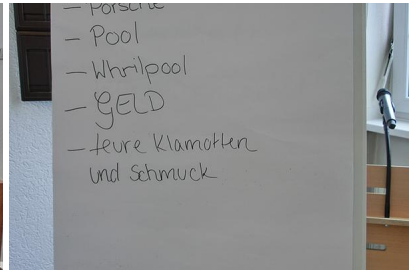 – Porsche
– Pool
– Whrilpool
– GELD
– teure Klamotten
und Schmuck